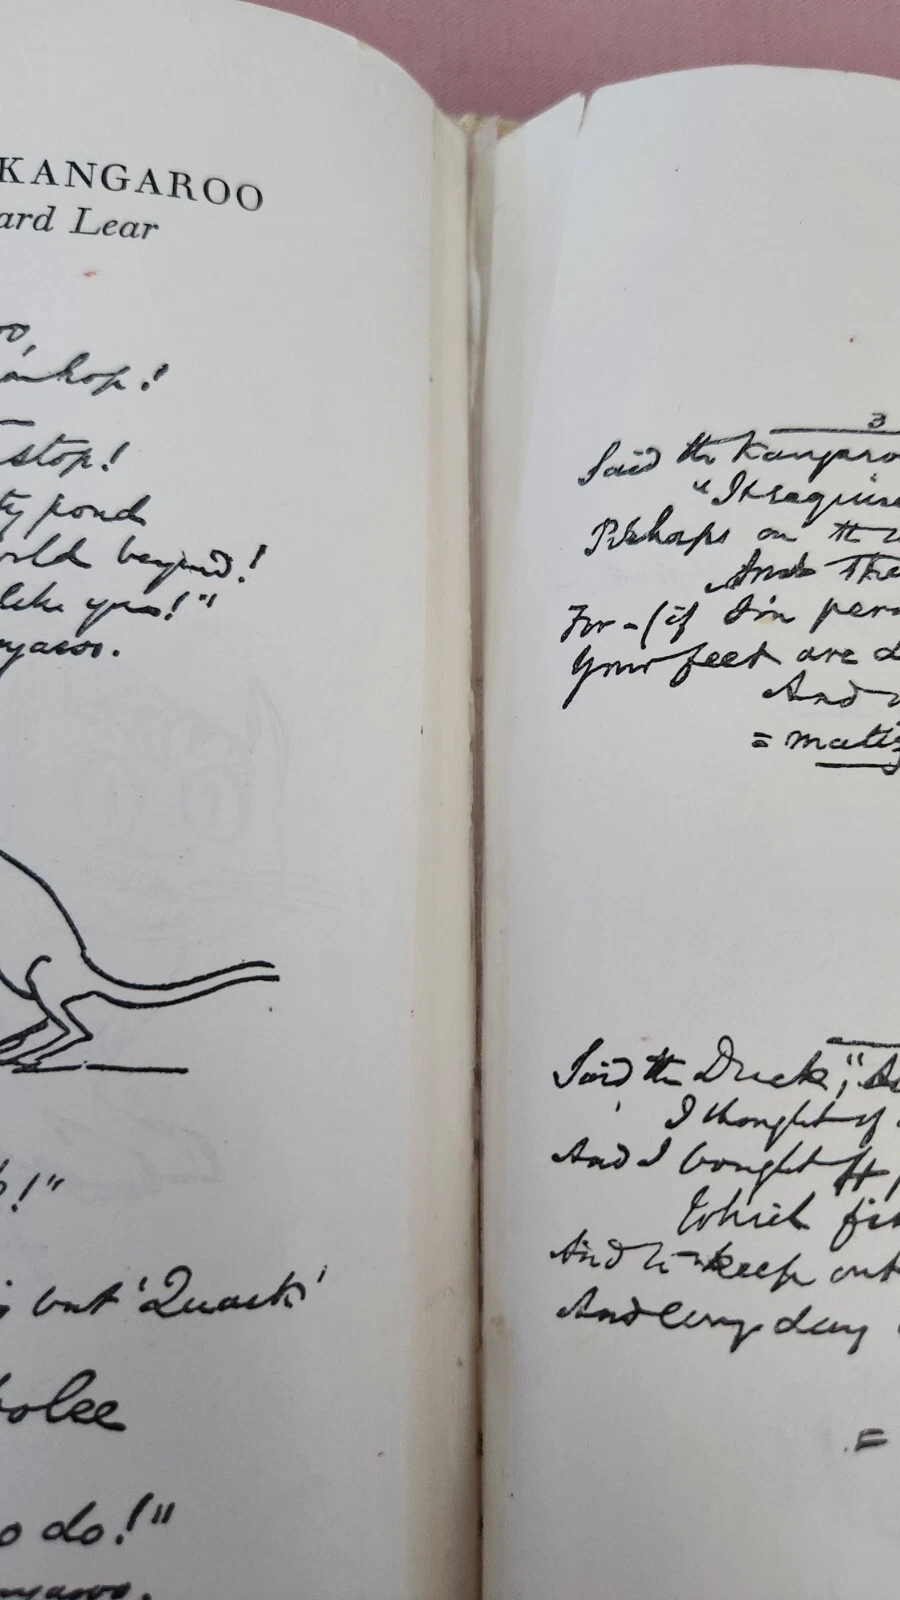 KANGAROO
ard Lear
oo,
hop!
stop!
ty pond
orld beyond!
like you!"
ngaroo.
!"
but 'Quack'
olee
o do!"
ngaroo.
3
Said the Kangaroo
"It requires
Perhaps on the w
And the
For - (if I'm perm
Your feet are
And
= matiz
Said the Duck, "As
I thought of
And I bought
Which fit
And to keep out
And every day
=